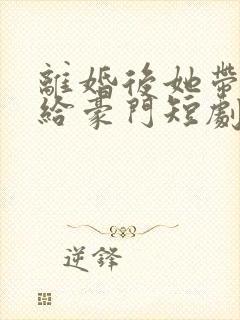 離婚後她帶
給豪門短劇
逆鋒